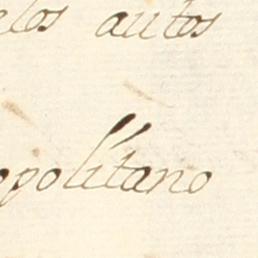 elos autos
opolitano